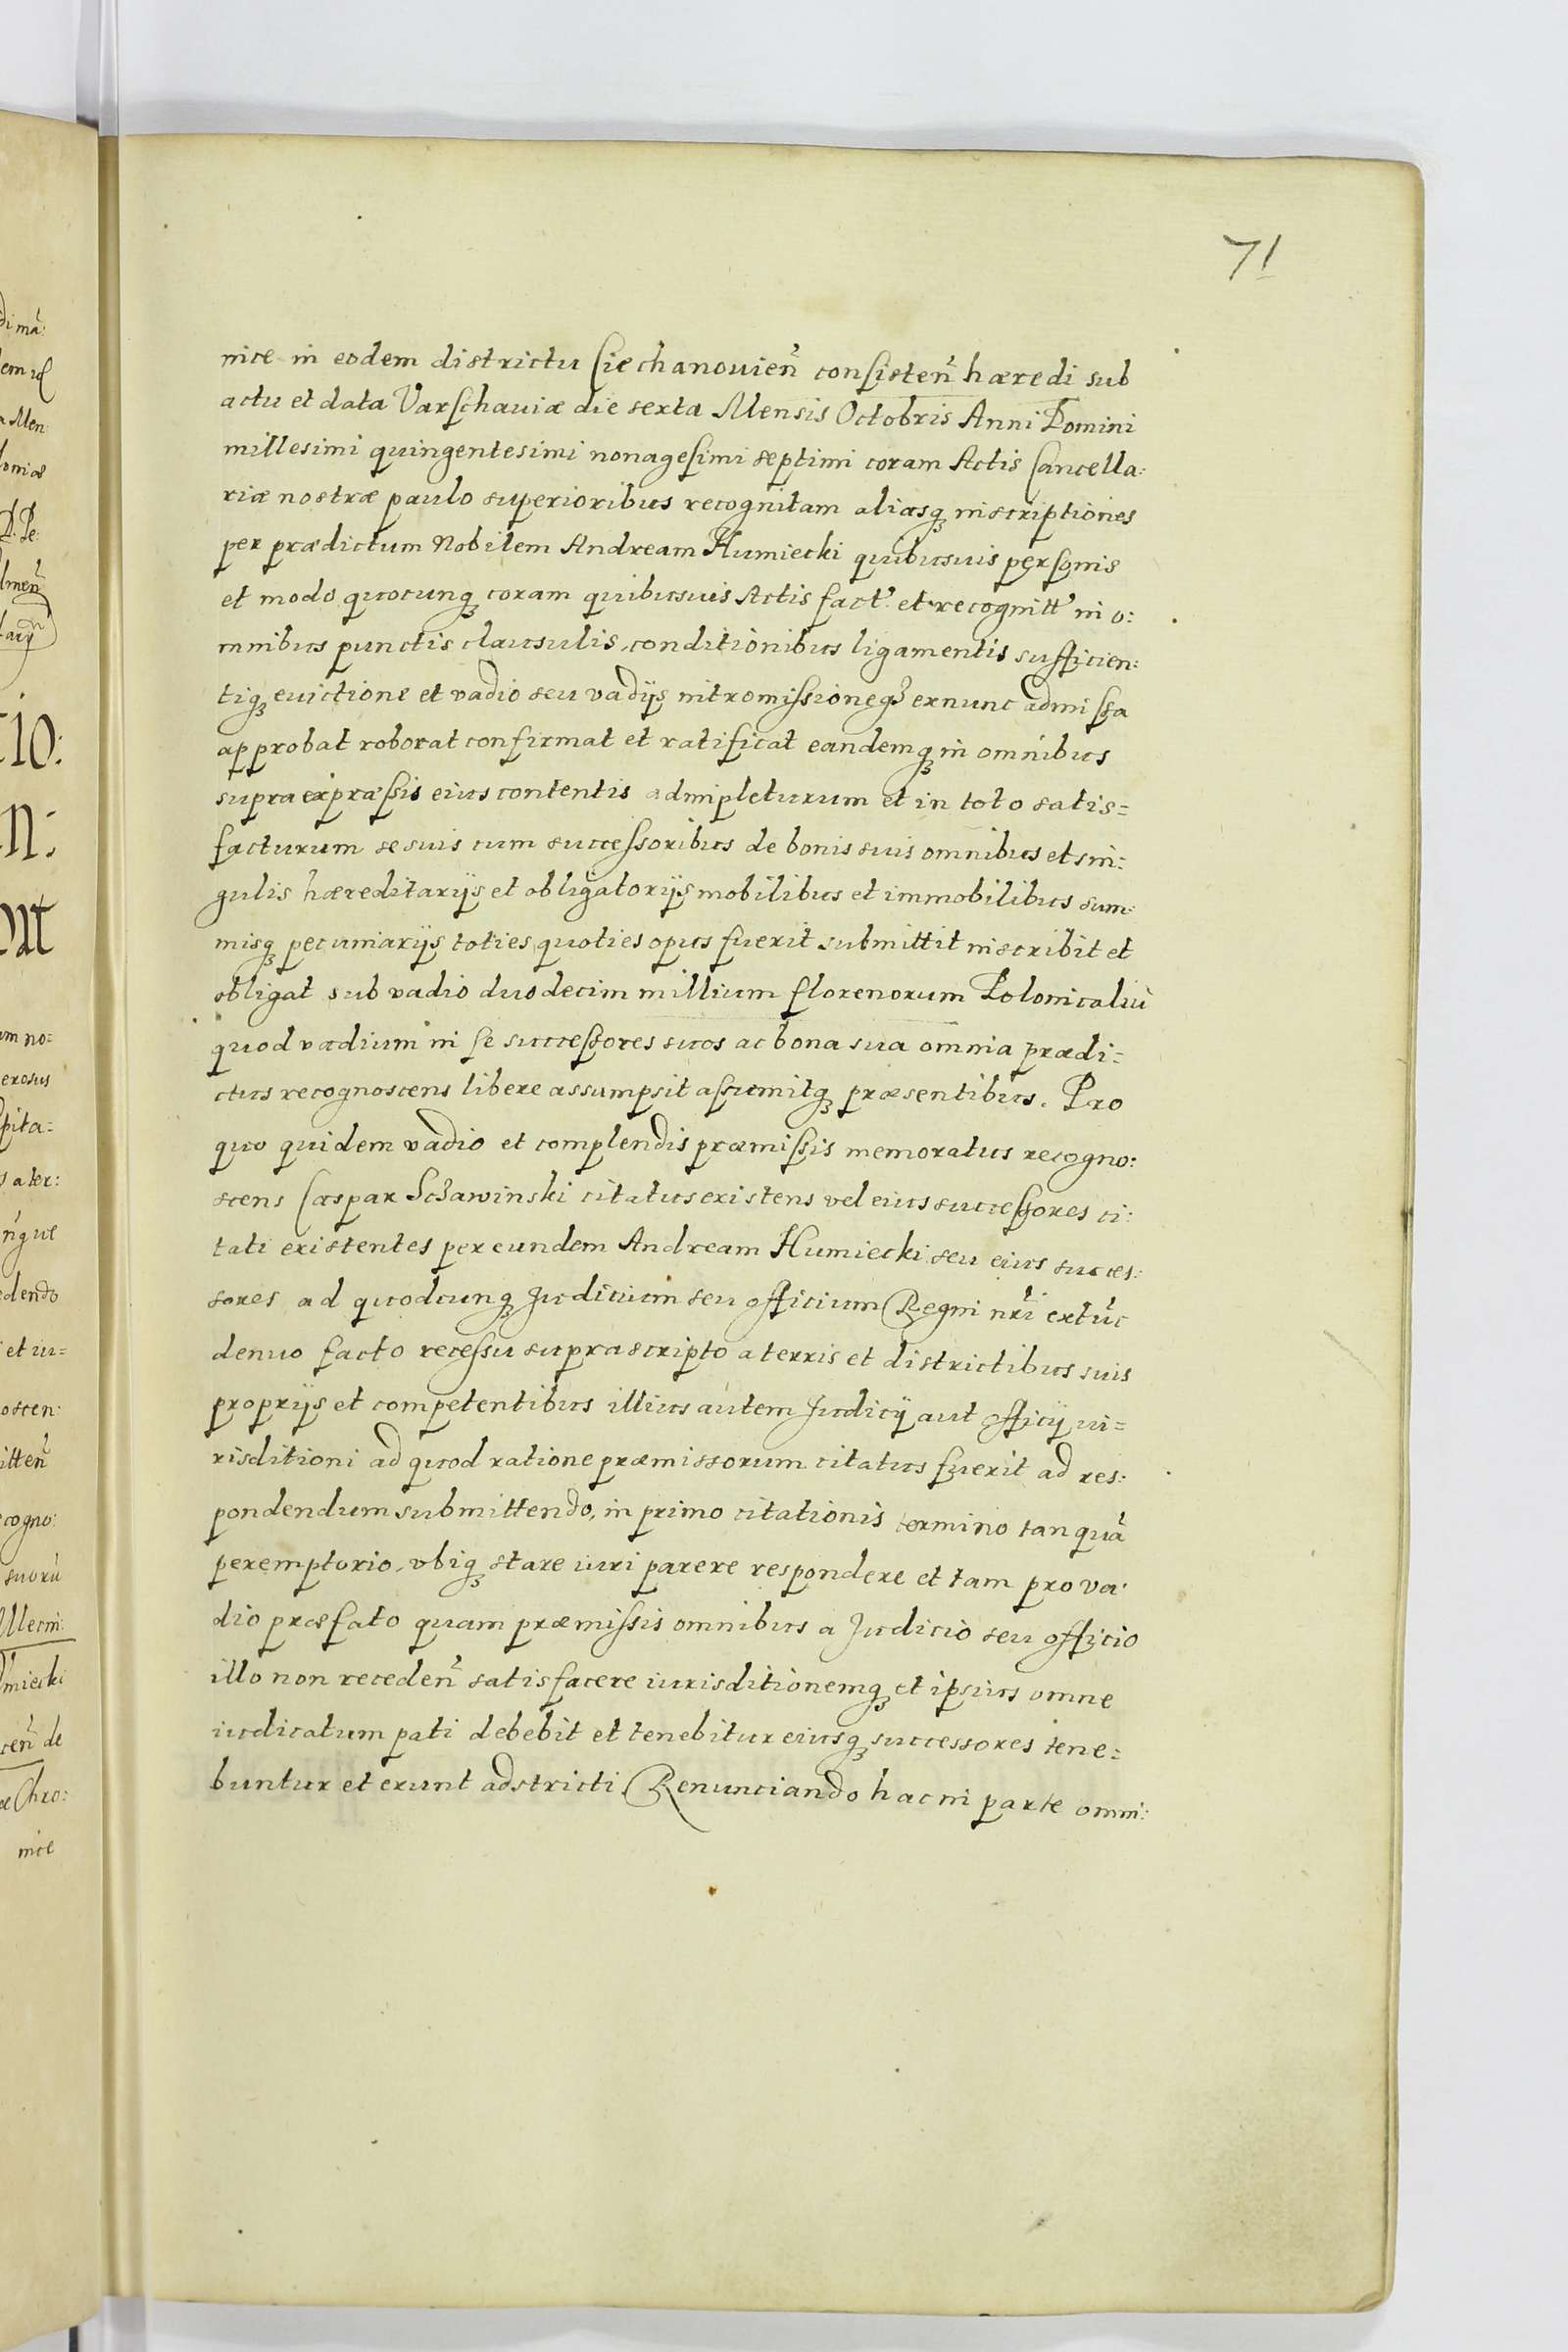 71
nice in eodem districtu Ciechanouien̄ consisten̄ hæredi sub
actu et data Varschauiæ die sexta Mensis Octobris Anni Domini
millesimi quingentesimi nonagesimi septimi coram Actis Cancella:
riæ nostræ paulo superioribus recognitam aliasq̨ inscriptiones
per prædictum Nobilem Andream Humiecki quibusuis personis
et modo quocunq̨ coram quibusuis Actis fact. et recognitt in o:
mnibus punctis clausulis, conditionibus ligamentis sufficien:
tiq̨ euictione et vadio seu vadijs intromissioneq̨ exnunc admissa
approbat roborat confirmat et ratificat eandemq̨ in omnibus
supra expræssis eius contentis adimpleturum et in toto satis=
facturum se suis cum successoribus de bonis suis omnibus et sin:
gulis hæreditarijs et obligatorijs mobilibus et immobilibus sum:
misq̨ pecuniarijs toties quoties opus fuerit submittit inscribit et
obligat sub vadio duodecim millium florenorum Polonicaliū
quod vadium in se successores suos ac bona sua omnia prædi=
ctus recognoscens libere assumpsit assumitq̨ præsentibus. Pro
quo quidem vadio et complendis præmissis memoratus recogno:
scens Caspar Sczawinski citatus existens vel eius successores ci:
tati existentes per eundem Andream Humiecki seu eius succes:
sores ad quodcunq̨ Judicium seu officium Regni nr̄i extūc
denuo facto recessu suprascripto a terris et districtibus suis
proprijs et competentibus illius autem Judicij aut officij iu=
risditioni ad quod ratione præmissorum citatus fuerit ad res:
pondendum submittendo, in primo citationis termino tanquā
peremptorio, vbiq̨ stare iuri parere respondere et tam pro va:
dio præfato quam præmissis omnibus a Judicio seu officio
illo non receden̄ satisfacere iurisditionemq̨ et ipsius omne
iudicatum pati debebit et tenebitur eiusq̨ successores tene=
buntur et erunt adstricti. Renunciando hac in parte omni: